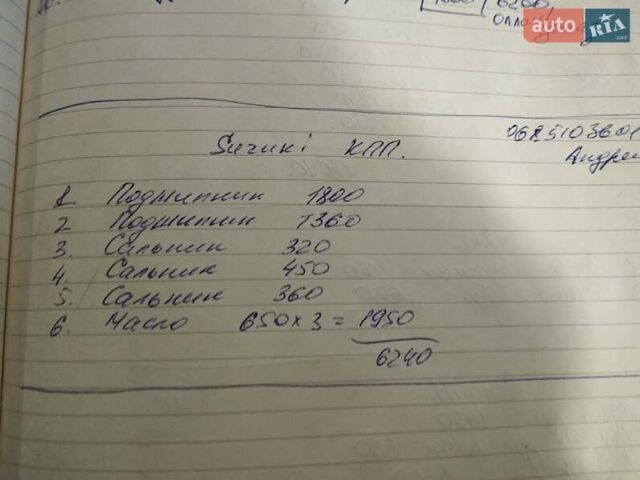 6200
auto RIA
.com
Опла
0685103601
Suzuki КПП.
Андрей
1. Подшипник 1800
2 Подшипник 1360
3. Сальник 320
4. Сальник 450
5. Сальник 360
6. Масло 650 x 3 = 1950
6240